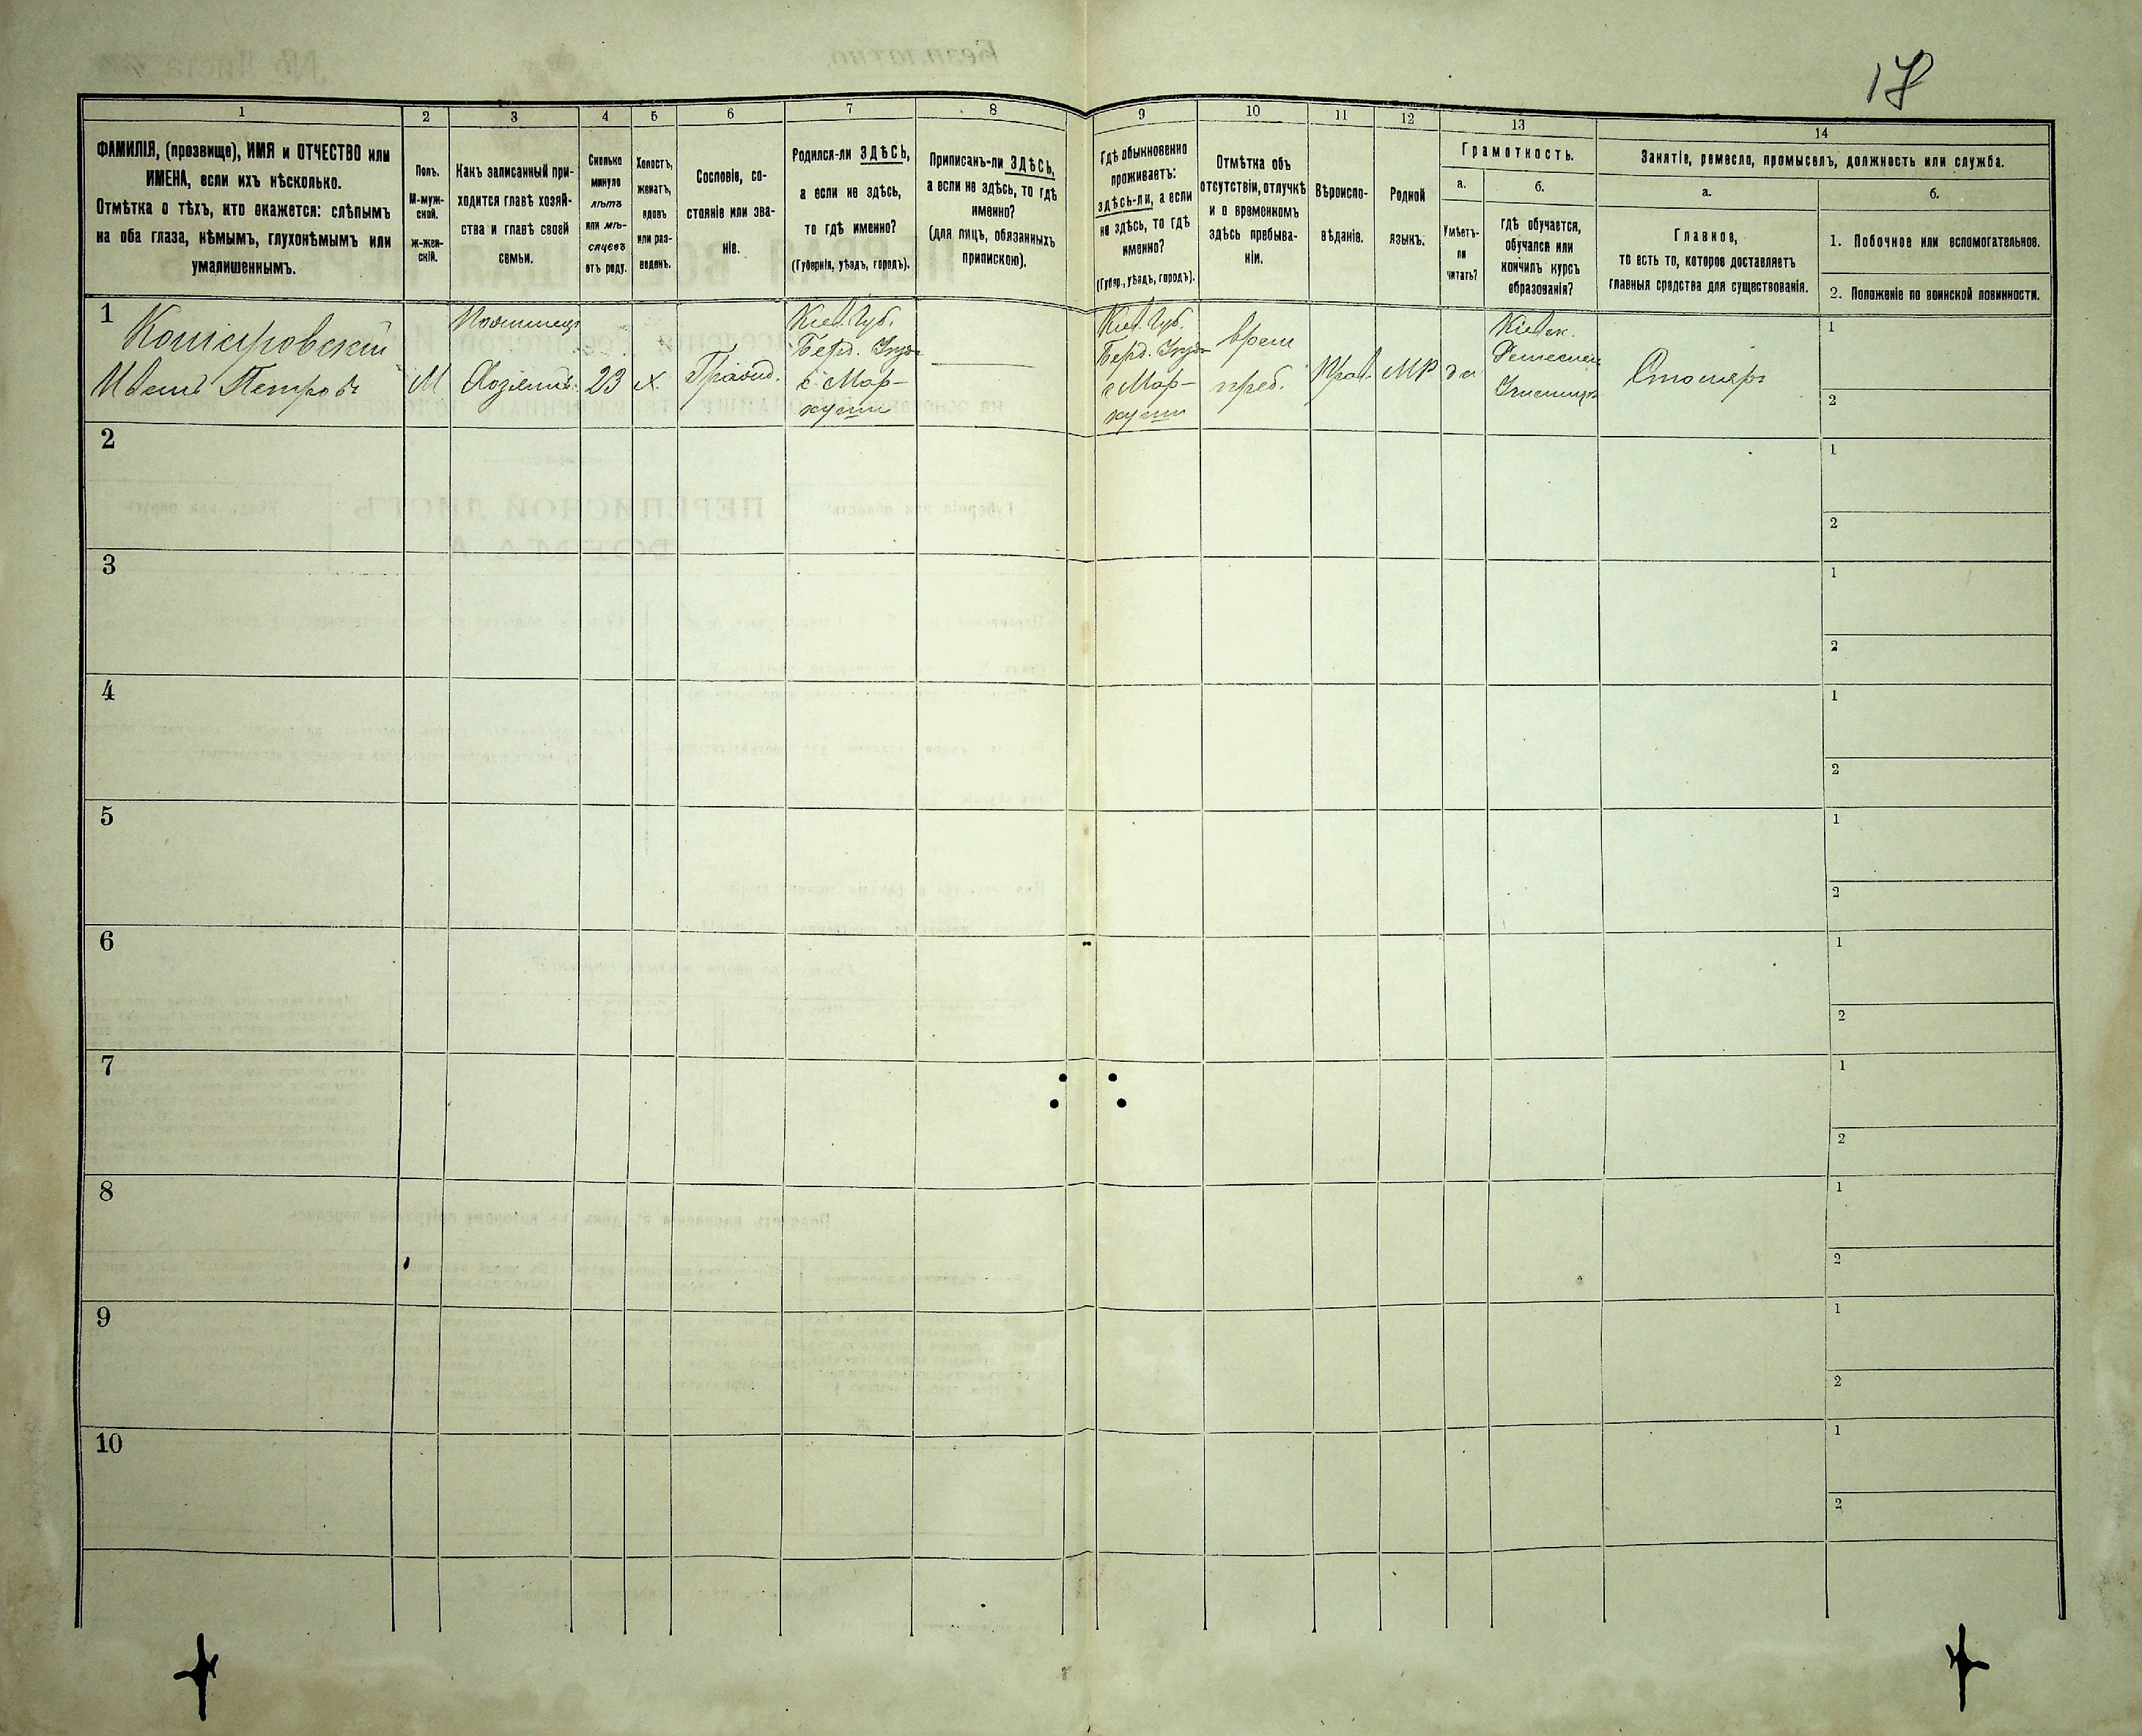 17
1
2
3
4
5
6
7
8
9
10
11
12
13
14
ФАМИЛІЯ, (прозвище), ИМЯ и ОТЧЕСТВО или
ИМЕНА, если ихъ нѣсколько.
Отмѣтка о тѣхъ, кто окажется: слѣпымъ
на оба глаза, нѣмымъ, глухонѣмымъ или
умалишеннымъ.
Полъ.
М-муж-
ской.
ж-жен-
скій.
Какъ записанный при-
ходится главѣ хозяй-
ства и главѣ своей
семьи.
Сколько
минуло
лѣтъ
или мѣ-
сяцевъ
отъ роду.
Холостъ,
женатъ,
вдовъ
или раз-
веденъ.
Сословіе, со-
стояніе или зва-
ніе.
Родился-ли ЗДѢСЬ,
а если не здѣсь,
то гдѣ именно?
(Губернія, уѣздъ, городъ).
Приписанъ-ли ЗДѢСЬ,
а если не здѣсь, то гдѣ
именно?
(для лицъ, обязанныхъ
припискою).
Гдѣ обыкновенно
проживаетъ:
здѣсь-ли, а если
не здѣсь, то гдѣ
именно?
(Губер., уѣздъ, городъ).
Отмѣтка объ
отсутствіи, отлучкѣ
и о временномъ
здѣсь пребыва-
ніи.
Вѣроиспо-
вѣданіе.
Родной
языкъ.
Грамотность.
а.
Умѣетъ-
ли
читать?
б.
гдѣ обучается,
обучался или
кончилъ курсъ
образованія?
Занятіе, ремесло, промыселъ, должность или служба.
а.
Главное,
то есть то, которое доставляетъ
главныя средства для существованія.
б.
1. Побочное или вспомогательное.
2. Положеніе по воинской повинности.
1
Иванъ Петровъ
М
Хозяинъ
23
х.
Кіев. Губ.
Берд.
с. Мар-
Кіев. Губ.
Берд.
с. Мар-
врем
преб.
Прав.
МР
да
Кіевск.
Столяръ
1
2
2
1
2
3
1
2
4
1
2
5
1
2
6
1
2
7
1
2
8
1
2
9
1
2
10
1
2